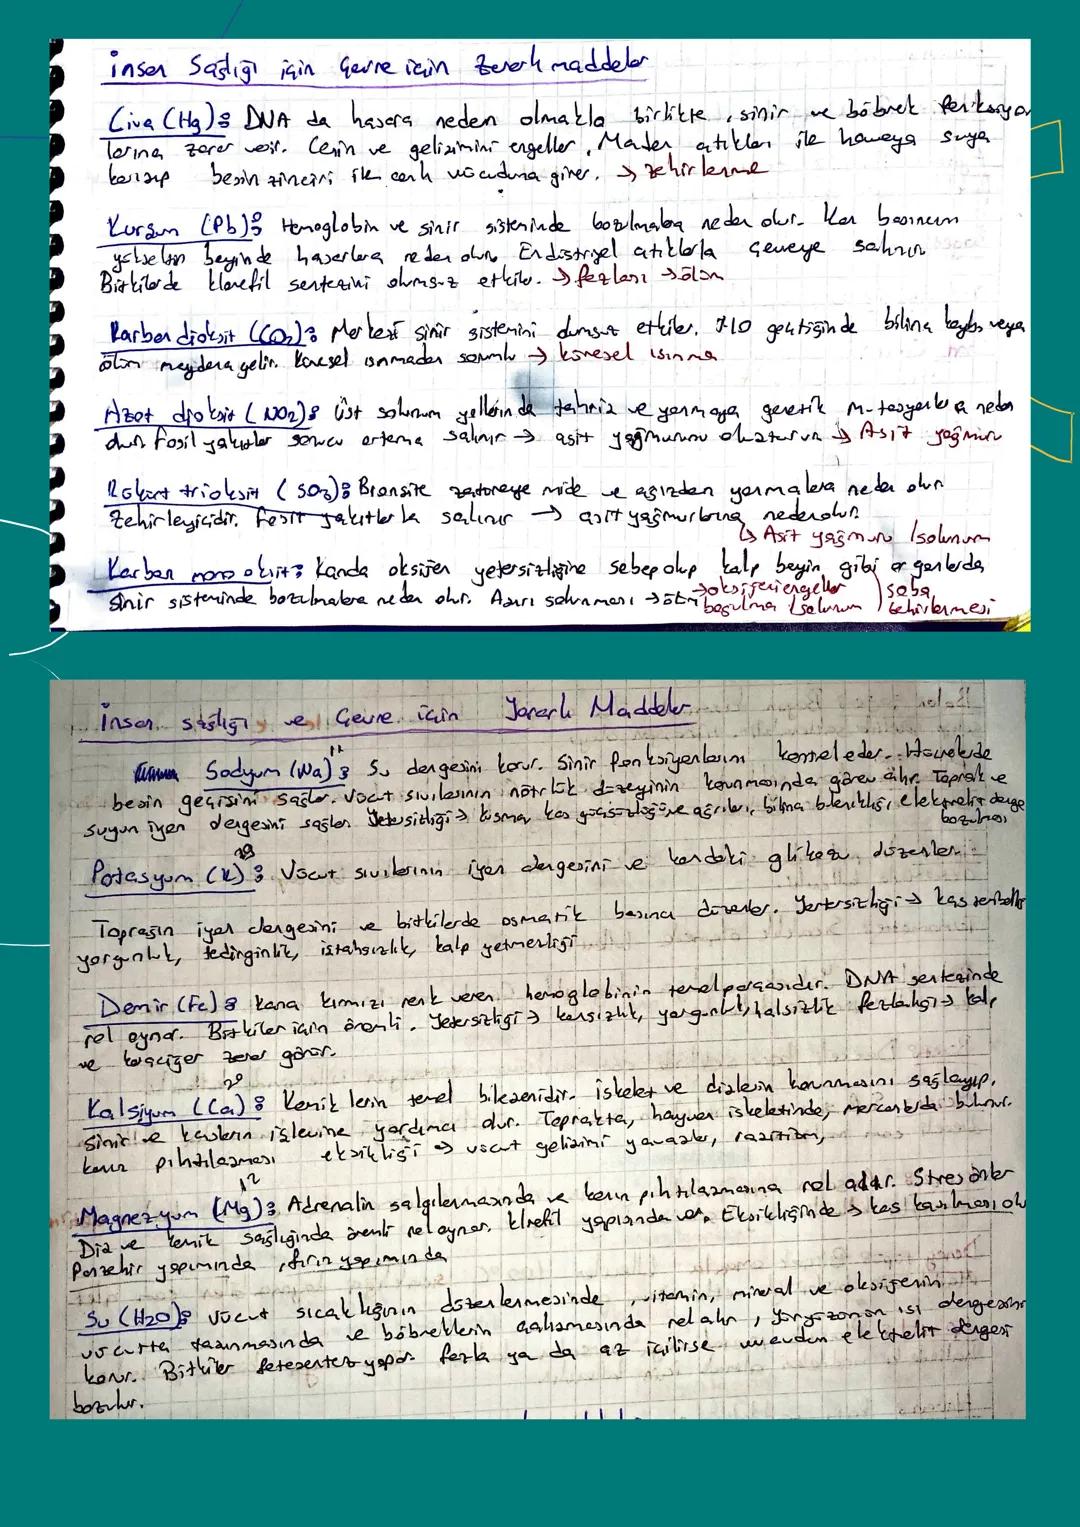 İnsan Sağlığı için Çevre için Zararlı maddeler
Civa (Hg): DNA da hasara neden olmakla birlikte, sinir ve böbrek fonksiyon
larına zarar verir. Cenin ve gelişimini engeller. Maden atıkları ile havaya suya
karışıp besin zinciri ile canlı vücuduna girer. → zehirlenme
Kurşun (Pb): Hemoglobin ve sinir sisteminde bozulmalara neden olur. Kan basıncını
yükseltip beyinde hasarlara neden olur. Endüstriyel atıklarla çevreye salınır
Bitkilerde klorofil sentezini olumsuz etkiler. → fazlası → ölüm
Karbon dioksit (CO2): Merkezi sinir sistemini olumsuz etkiler. %10 geçtiğinde bilinç kaybı veya
ölüm meydana gelir. Küresel ısınmadan sorumlu → küresel ısınma
Azot dioksit (NO2): Üst solunum yollarında tahriş ve yanmaya genetik mutasyonlara neden
olur. Fosil yakıtlar sonucu ortama salınır → asit yağmurunu oluşturur → Asit yağmuru
Kükürt trioksit (SO3): Bronşite zatüreye mide ve ağızdan yanmalara neden olur
Zehirleyicidir. Fosil yakıtlarla salınır → asit yağmurlarına neden olur.
↳ Asit yağmuru / solunum
Karbon mono oksit: Kanda oksijen yetersizliğine sebep olup kalp beyin gibi organlarda
sinir sisteminde bozulmalara neden olur. Aşırı solunması → ölüm → oksijeni engeller
boğulma / solunum
soba
zehirlenmesi
İnsan sağlığı ve Çevre için Yararlı Maddeler
11
Sodyum (Na): Su dengesini korur. Sinir fonksiyonlarını kontrol eder. Hücrelerde
besin geçişini sağlar. Vücut sıvılarının nötrlük düzeyinin korunmasında görev alır. Toprak ve
suyun iyon dengesini sağlar. Yetersizliği → kusma, kas güçsüzlüğü ve ağrıları, bilinç bulanıklığı, elektrolit denge
bozulması
19
Potasyum (K): Vücut sıvılarının iyon dengesini ve kandaki glikozu düzenler.
Toprağın iyon dengesini ve bitkilerde osmotik basıncı düzenler. Yetersizliği → kas
yorgunluk, tedirginlik, iştahsızlık, kalp yetmezliği
Demir (Fe): Kana kırmızı renk veren hemoglobinin temel parçasıdır. DNA sentezinde
rol oynar. Bitkiler için önemli. Yetersizliği → kansızlık, yorgunluk, halsizlik fazlalığı → kalp
ve karaciğer zarar görür.
20
Kalsiyum (Ca): Kemiklerin temel bileşenidir. İskelet ve dişlerin korunmasını sağlayıp,
sinir ve kasların işlevine yardımcı olur. Toprakta, hayvan iskeletinde, mercanlarda bulunur.
kanın pıhtılaşması eksikliği → vücut gelişimi yavaşlar, raşitizm,
12
Magnezyum (Mg): Adrenalin salgılanmasında ve kanın pıhtılaşmasına rol alır. Stres önler
Diş ve kemik sağlığında önemli rol oynar. Klorofil yapısında var. Eksikliğinde → kas kasılması olur
Panzehir yapımında, fırın yapımında
Su (H2O): Vücut sıcaklığının düzenlenmesinde, vitamin, mineral ve oksijenin
vücutta taşınmasında ve böbreklerin çalışmasında rol alır, yeryüzünün ısı dengesini
korur. Bitkiler fotosentez yapar. fazla ya da az içilirse elektrolit dengesi
bozulur.